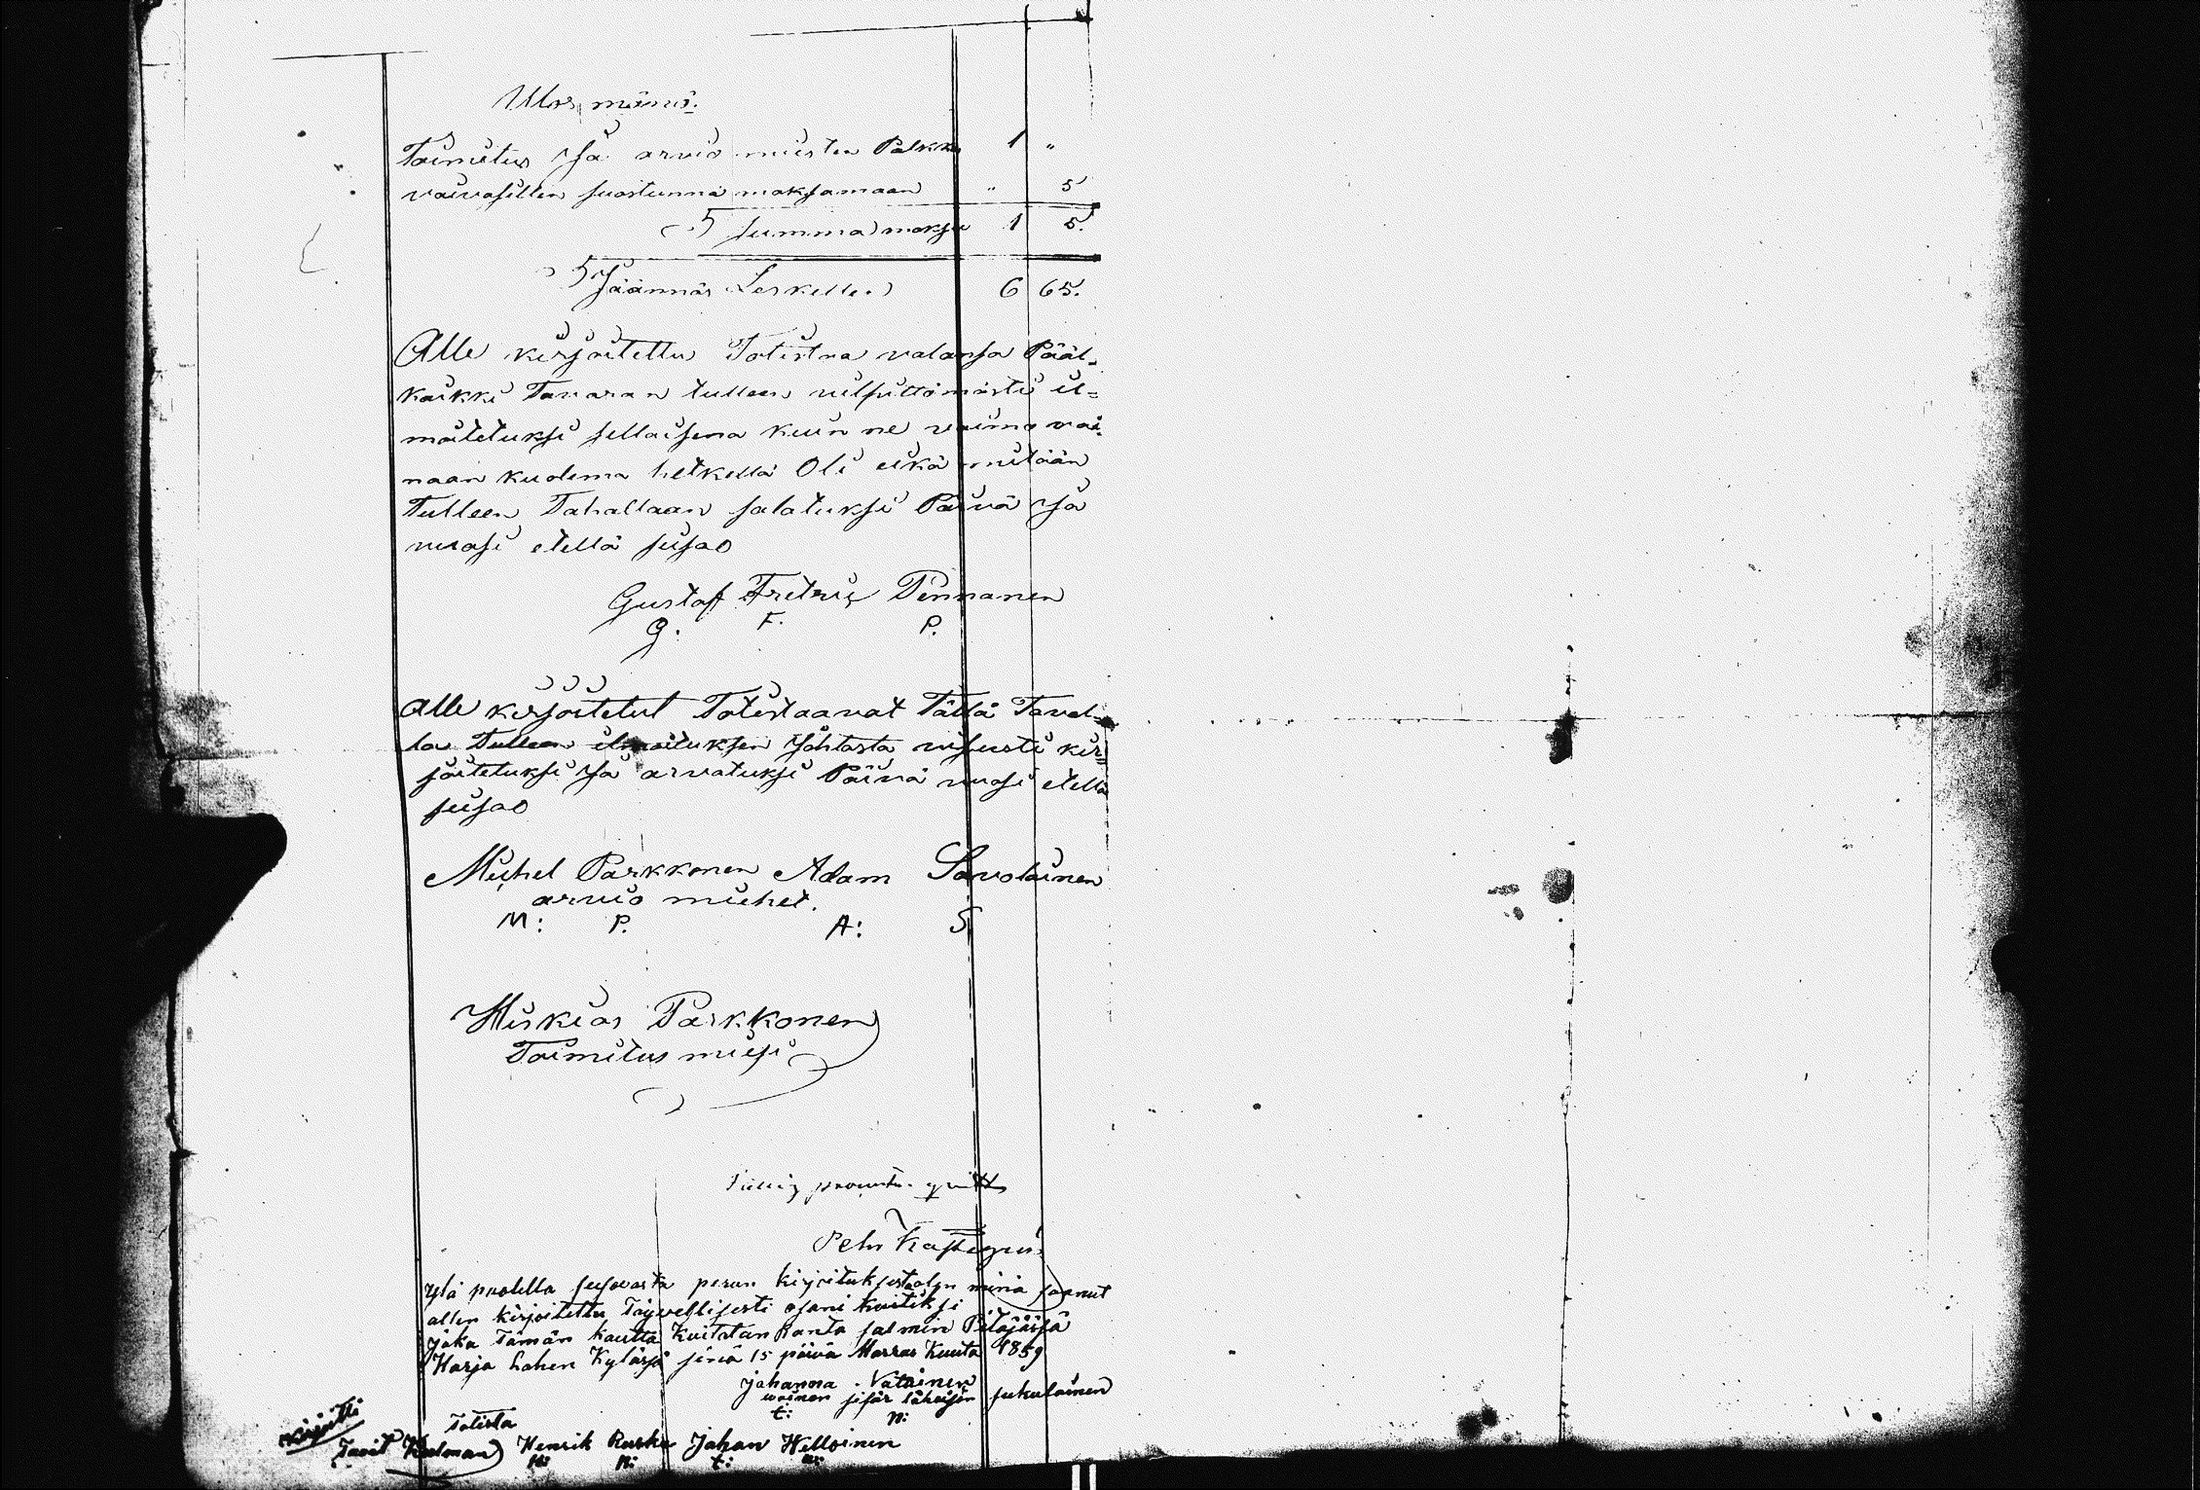 Ulos mänö.
Toimitus Ja arvio miesten Palkka 1 "
vaivasillen suostunna maksamaan " 5
Summa maksu 1 5.
Jäännös Leskellen 6 65.
Alle kirjoitettu Totistaa valansa Pääl-
kaikki Tavaran tulleen vilpittömästi il=
moitetuksi sellaisena kuin ne vaimo vai-
naan kuolema hetkellä Oli eikä mitään
Tulleen Tahallaan salatuksi Päivä Ja
vuosi etellä seisao
Gustaf Fretrig Pennanen
G. F. P.
Alle kirjoitetut Totistaavat Tällä Taval-
la Tulleen ilmoituksen Johtasta visusti kir=
joitetuksi Ja arvatuksi Päivä vuosi etellä
seisao
Michel Parkkonen Adam Savolainen
arvio miehet.
M: P. A: S
Hiskias Parkkonen
Toimitus miesi
quitt
Petr
Ylä puolella seisovasta perun kirjoituksesta olen minä saanut
allen kirjoitettu Täyvellisesti osani kuitiksi
Joka Tämän kautta Kuitatan Ranta salmin Pitäjässä
Harja Lahen Kylässä sinä 15 päivä Marras Kuuta 1859
Johanna Vatainen
wainan sisär läheisin sukulainen
t: n:
Kirjoitti
Totista
Tavit Henrik Ruske Johan Helloinen